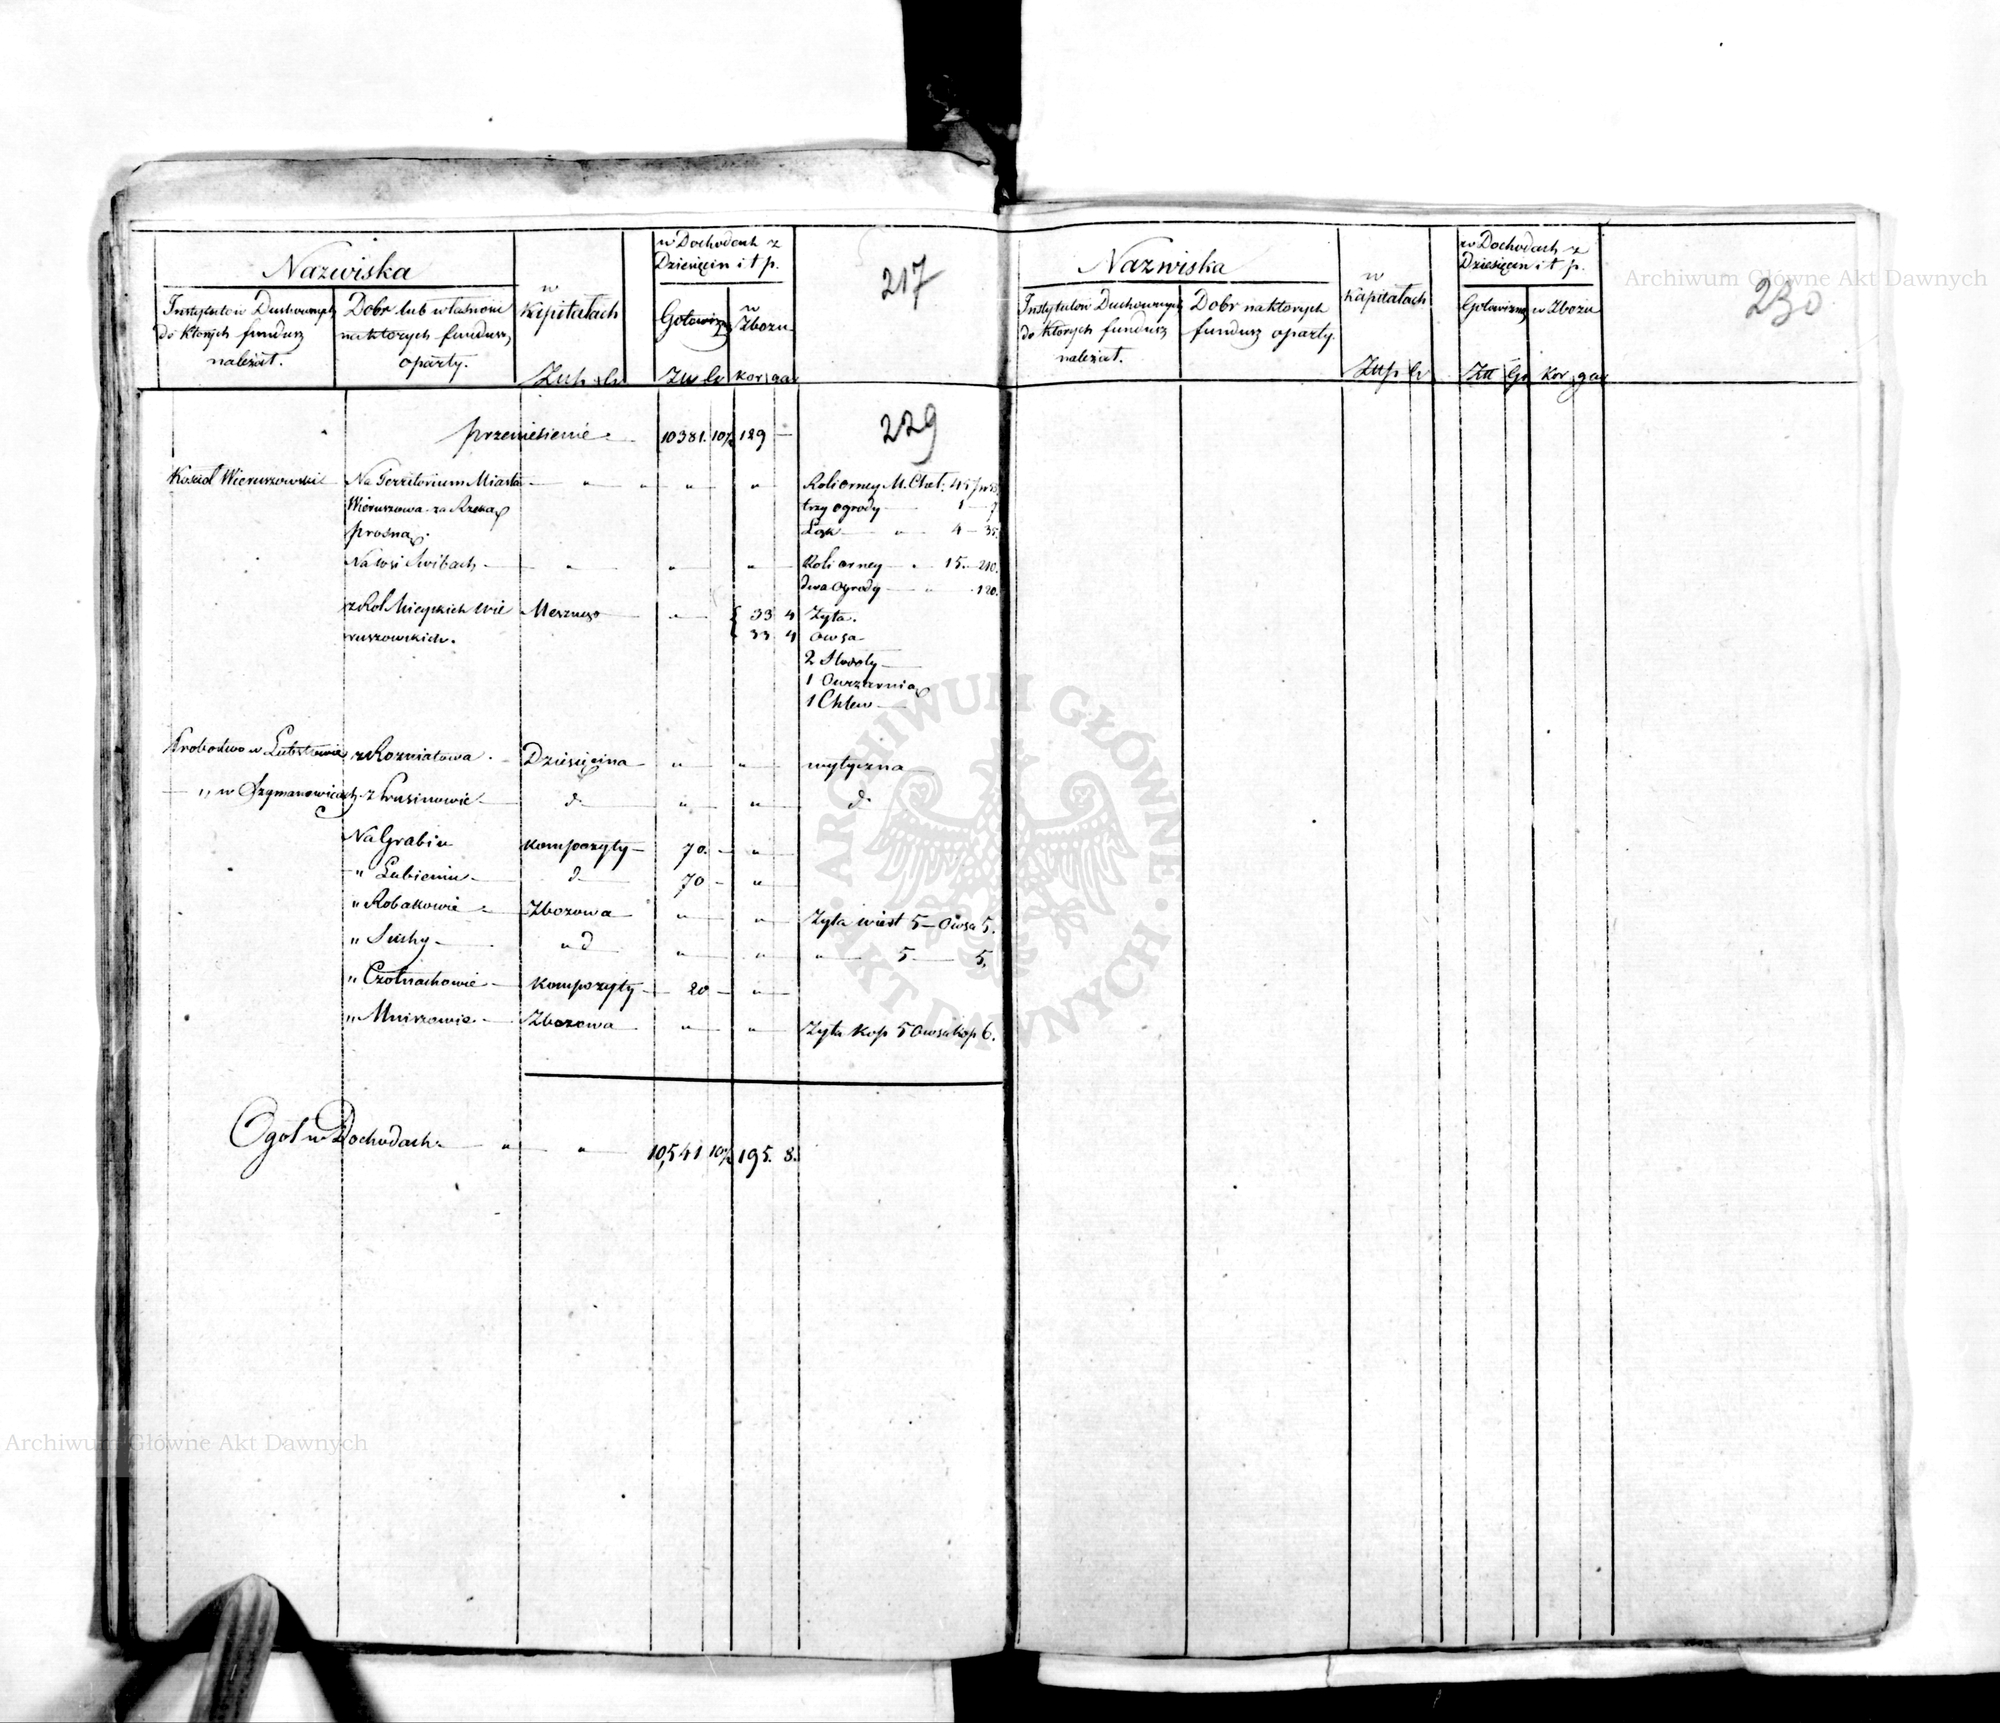 Nazwiska
Instytutów Duchownych
do których fundusz
należał.
Dobr lub własności
na których fundusz
oparty.
w
Kapitałach
Złłp. gr
w Dochodach z
Dziesięcin i t p.
Gotowizną
Zł gr
w
Zbożu
kor. gar
217
229
przeniesienie 10381. 10½ 129 —
Kościoł Wieruszowski Na Territorium Miasta — " " " " Roli orney M. Cheł: 45
Wieruszowa za Rzeką trzy ogrody — 1 — 7
Prosną. Łąk — " 4 — 35.
Na wsi — " " " Roli orney — " 15. — 210.
dwa Ogrody — " 120.
z Rol Mieyskich Wie Mesznego — " 33 4 Żyta.
ruszowskich. 33 4 Owsa
2 Stodoły
1 Owczarnia
1 Chlew
Probostwo w Lututowie z Dziesięcina — " " wytyczna
— " w Szymanowicach z d — " " d
Na Grabiu Kompozyty — 70. — "
" Łubieniu — d — 70 — "
" Robakowie — Zbożowa — " " Żyta wiert 5 — Owsa 5.
" Suchy — " d — " " " — 5 — 5.
" Czołnochowie — Kompozyty — 20 — "
" Mniszewie — Zbożowa — " " Żyta kop 5 Owsa kop 6.
Ogół w Dochodach — " " 10,541 10½ 195. 8.
Nazwiska
Instytutów Duchownych
do których fundusz
należał.
Dobr na których
fundusz oparty.
w
Kapitałach
Złłp gr
w Dochodach z
Dziesięcin i t p.
Gotowizną
w Zbożu
Złł Gr kor gar
230
Archiwum Główne Akt Dawnych
ARCHIWUM GŁÓWNE · AKT DAWNYCH ·
Archiwum Główne Akt Dawnych